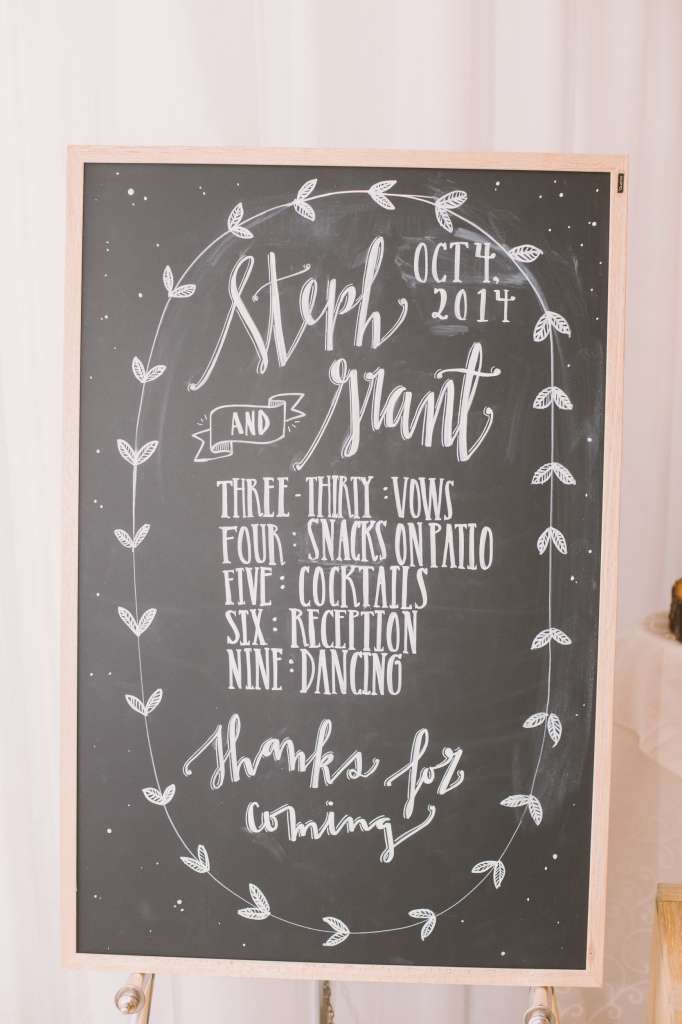 Steph
OCT 4,
2014
AND
Grant
THREE-THIRTY : VOWS
FOUR : SNACKS ON PATIO
FIVE : COCKTAILS
SIX : RECEPTION
NINE : DANCING
thanks for
coming